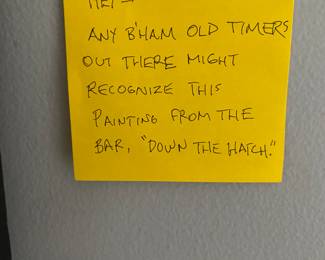 HEY —
ANY B'HAM OLD TIMERS
OUT THERE MIGHT
RECOGNIZE THIS
PAINTING FROM THE
BAR, "DOWN THE HATCH."